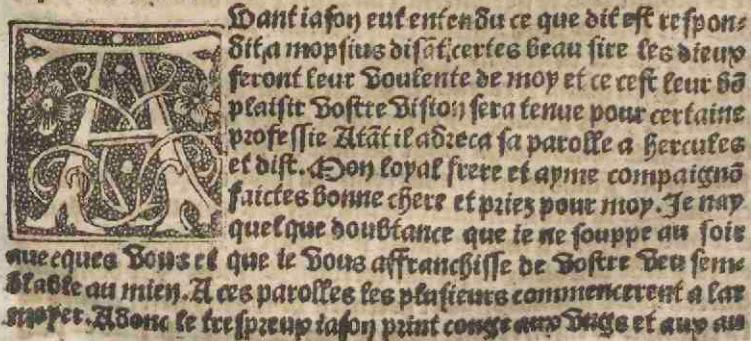 A Vant iason eut entendu ce que dit est respon-
dit a mopsius disãt, certes beau sire les dieux
feront leur voulente de moy et ce cest leur bõ
plaisir vostre vision sera tenue pour certaine
professie Atãt il adreca sa parolle a hercules
et dist. Mon loyal frere et ayme compaignõ
faictes bonne chere et priez pour moy. Je nay
quelque doubtance que ie ne souppe au soir
auecques vous et que ie vous affranchisse de vostre veu sem-
blable au mien. A ces parolles les plusieurs commencerent a lar
moyer. Adonc le trespreux iason print conge aux vngs et aux au